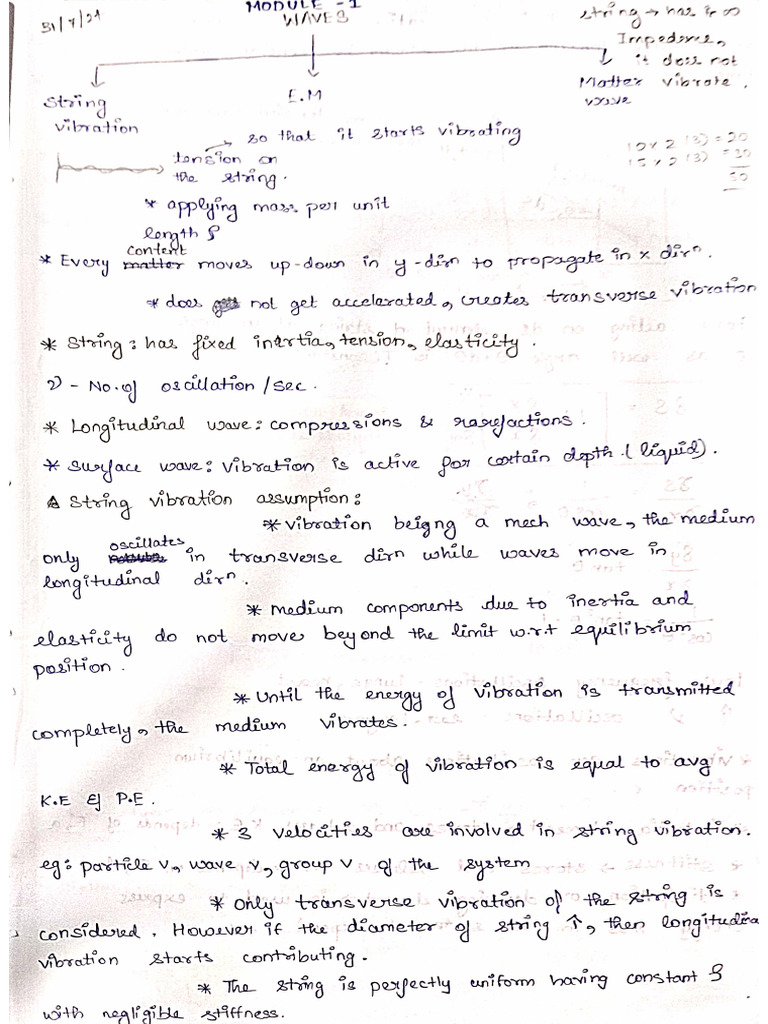 31/7/21
MODULE - 1
WAVES
string → has is ∞
Impedence,
it does not
vibrate.
String
vibration
E.M
Matter
wave
so that it starts vibrating
tension on
the string.
10 x 2 (3) = 20
15 x 2 (3) = 30
50
* applying mass per unit
length ρ
* Every content moves up-down in y-dirn to propagate in x dirn.
* does not get accelerated, creates transverse vibration
* String: has fixed inertia, tension, elasticity.
ν - No. of oscillation / sec.
* Longitudinal wave: compressions & rarefactions.
* surface wave: vibration is active for certain depth. (liquid).
String vibration assumption:
* vibration beigng a mech wave, the medium
only oscillates in transverse dirn while waves move in
longitudinal dirn.
* medium components due to inertia and
elasticity do not move beyond the limit w.r.t equilibrium
position.
* Until the energy of vibration is transmitted
completely, the medium vibrates.
* Total energy of vibration is equal to avg
K.E & P.E.
* 3 velocities are involved in string vibration.
eg: particle v, wave v, group v of the system
* Only transverse vibration of the string is
considered. However if the diameter of string ↑, then longitudina
vibration starts contributing.
* The string is perfectly uniform having constant ρ
with negligible stiffness.